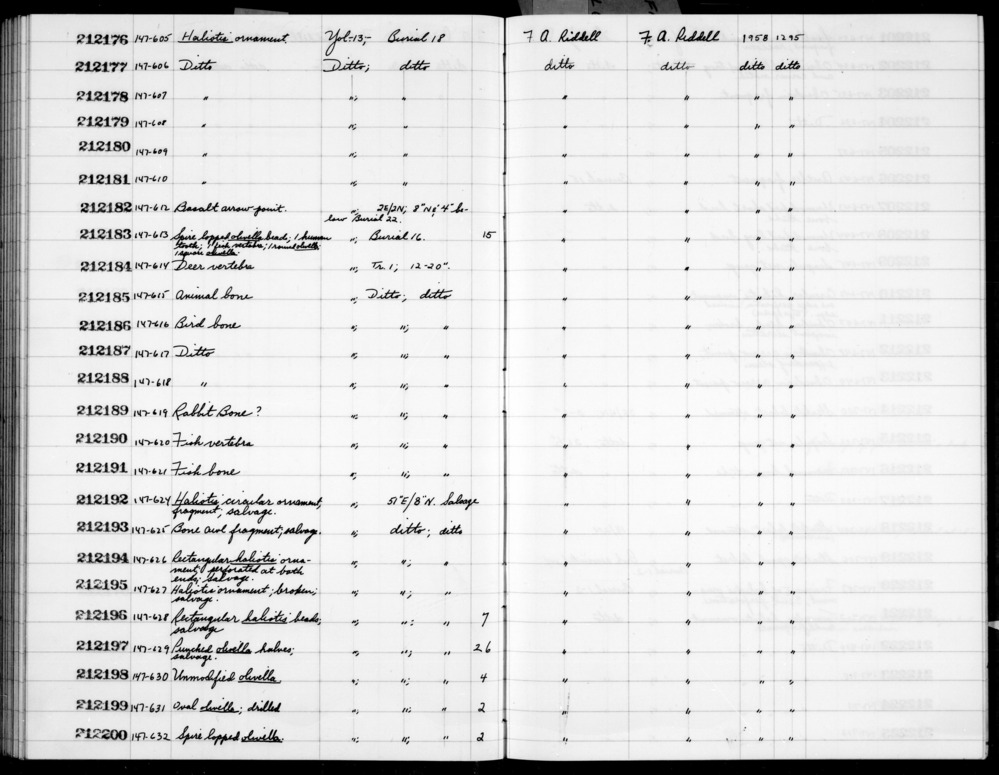 212176 147-605 Haliotis ornament. Yol-13,- Burial 18 F A. Riddell F A. Riddell 1958 1295
212177 147-606 Ditto Ditto; ditto ditto ditto ditto ditto
212178 147-607 " "; " " " " "
212179 147-608 " "; " " " " "
212180 147-609 " "; " " " " "
212181 147-610 " "; " " " " "
212182 147-612 Basalt arrow point. "; 2E/2N; 8"N; 4" be- " " " "
low Burial 22.
212183 147-613 Spire lopped olivella beads; 1 human "; Burial 16. 15 " " " "
tooth; 1 fish vertebra; 1 round olivella;
1 square olivella.
212184 147-614 Deer vertebra "; Tr. 1; 12-20". " " " "
212185 147-615 Animal bone "; Ditto; ditto " " " "
212186 147-616 Bird bone "; "; " " " " "
212187 147-617 Ditto "; "; " " " " "
212188 147-618 " "; "; " " " " "
212189 147-619 Rabbit Bone? "; "; " " " " "
212190 147-620 Fish vertebra "; "; " " " " "
212191 147-621 Fish bone "; "; " " " " "
212192 147-624 Haliotis circular ornament, "; 51"E/8"N. Salvage " " " "
fragment; salvage.
212193 147-625 Bone awl fragment; salvage. "; ditto; ditto " " " "
212194 147-626 Rectangular haliotis orna- "; "; " " " " "
ment, perforated at both
ends; salvage.
212195 147-627 Haliotis ornament; broken; "; "; " " " " "
salvage.
212196 147-628 Rectangular haliotis beads; "; "; " 7 " " " "
salvage
212197 147-629 Punched olivella halves; "; "; " 26 " " " "
salvage.
212198 147-630 Unmodified olivella "; "; " 4 " " " "
212199 147-631 Oval olivella; drilled "; "; " 2 " " " "
212200 147-632 Spire lopped olivella. "; "; " 2 " " " "